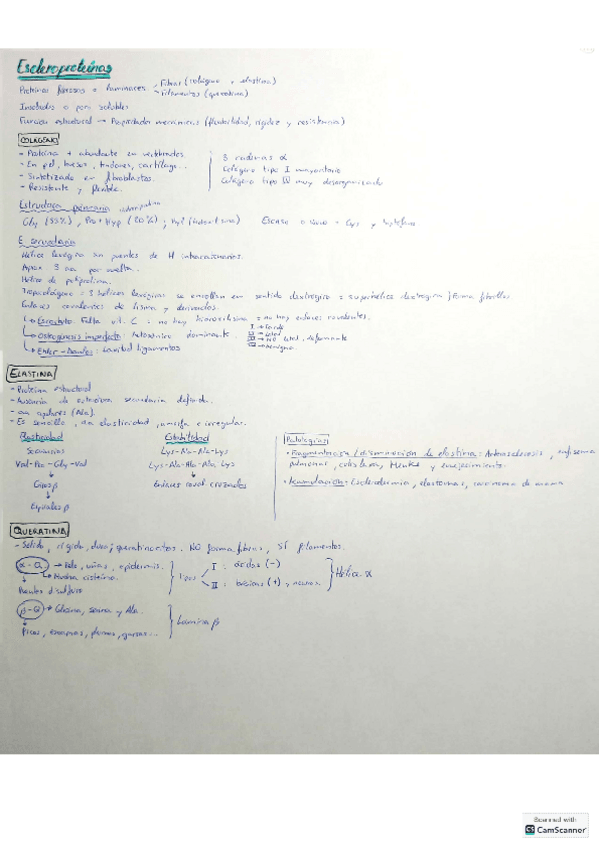 Escleroproteínas
Proteínas fibrosas o laminares Fibras (colágeno y elastina)
Filamentos (queratina)
Insolubles o poco solubles
Función estructural → Propiedades mecánicas (flexibilidad, rigidez y resistencia)
COLÁGENO
- Proteína + abundante en vertebrados.
- En piel, huesos, tendones, cartílago...
- Sintetizada en fibroblastos.
- Resistente y flexible.
3 cadenas α
Colágeno tipo I mayoritario
Colágeno tipo IV muy desorganizado
Estructura primaria
Gly (33%), Pro + Hyp (20%); Hyl (hidroxilisina) Escaso o vacío - Cys y
E. secundaria
Hélice levógira sin puentes de H intracatenarios.
Aprox. 3 aa por vuelta.
Hélice de poliprolina.
Tropocolágeno = 3 hélices levógiras se enrollan en sentido dextrógiro = superhélice dextrógira / Forma fibrillas
Enlaces covalentes de lisina y derivados.
↳ Escorbuto: Falta vit. C = no hay hidroxilisina = no hay enlaces covalentes.
↳ Osteogénesis imperfecta: Autosómico dominante.
I → Tardía
II → Letal
III → NO letal, deformante
IV → Benigna
↳ Ehler-Danlos: Laxitud ligamentos.
ELASTINA
- Proteína estructural
- Ausencia de estructura secundaria definida.
- aa apolares (Ala).
- Es sencillo, da elasticidad, amorfa e irregular.
Elasticidad
Secuencias
Val-Pro-Gly-Val
↓
Giros β
↓
Espirales β
Estabilidad
Lys-Ala-Ala-Lys
Lys-Ala-Ala-Ala, Lys
↓
Enlaces coval. cruzados
Patologías
- Fragmentación / disminución de elastina: Arterosclerosis, enfisema
pulmonar, cutis laxa, Menkes y envejecimiento.
- Acumulación: Esclerodermia, elastomas, carcinoma de mama
QUERATINA
- Sólido, rígido, duro; queratinocitos. NO forma fibras, SÍ filamentos.
α-Q → Pelo, uñas, epidermis.
↳ Mucha cisteína.
↓
Puentes disulfuro
Tipos
I: ácidas (-)
II: básicas (+) y neutras
Hélice-α
β-Q → Glicina, serina y Ala.
↳ Picos, escamas, plumas, garras...
Lámina β
Scanned with
CS CamScanner